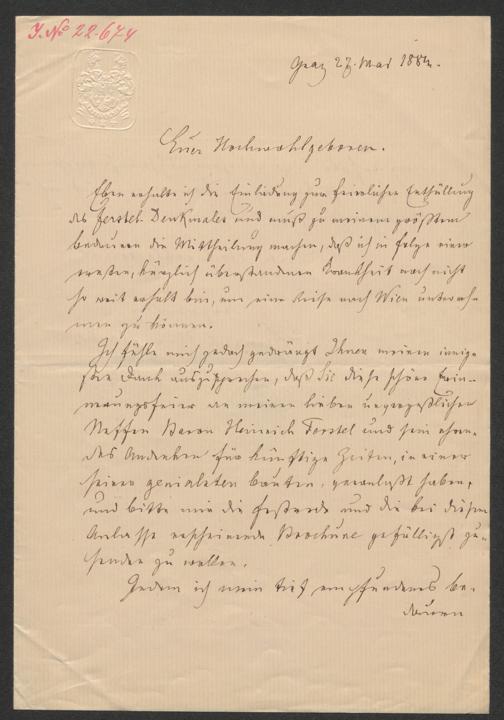 J. No 22.674
Graz 27. Mai 188
Euer Hochwohlgeboren.
Eben erhalte ich die Einladung zur feierlichen Enthüllung
des Ferstel-Denkmales und muß zu meinem größten
Bedauern die Mittheilung machen, daß ich in Folge einer
ersten, kürzlich überstandenen Krankheit noch nicht
so weit erholt bin, um eine Reise nach Wien unterneh-
men zu können.
Ich fühle mich jedoch gedrängt Ihnen meinen innig-
sten Dank auszusprechen, daß Sie diese schöne Erin-
nerungsfeier an meinen lieben unvergeßlichen
Neffen Baron Heinrich Ferstel und sein ehren-
des Andenken für künftige Zeiten, in einer
seiner genialsten Bauten, veranlaßt haben,
und bitte mir die Festrede und die bei diesem
Anlasse erscheinende Brochure gefälligst zu-
senden zu wollen.
Indem ich mein tief empfundenes Be-
dauern